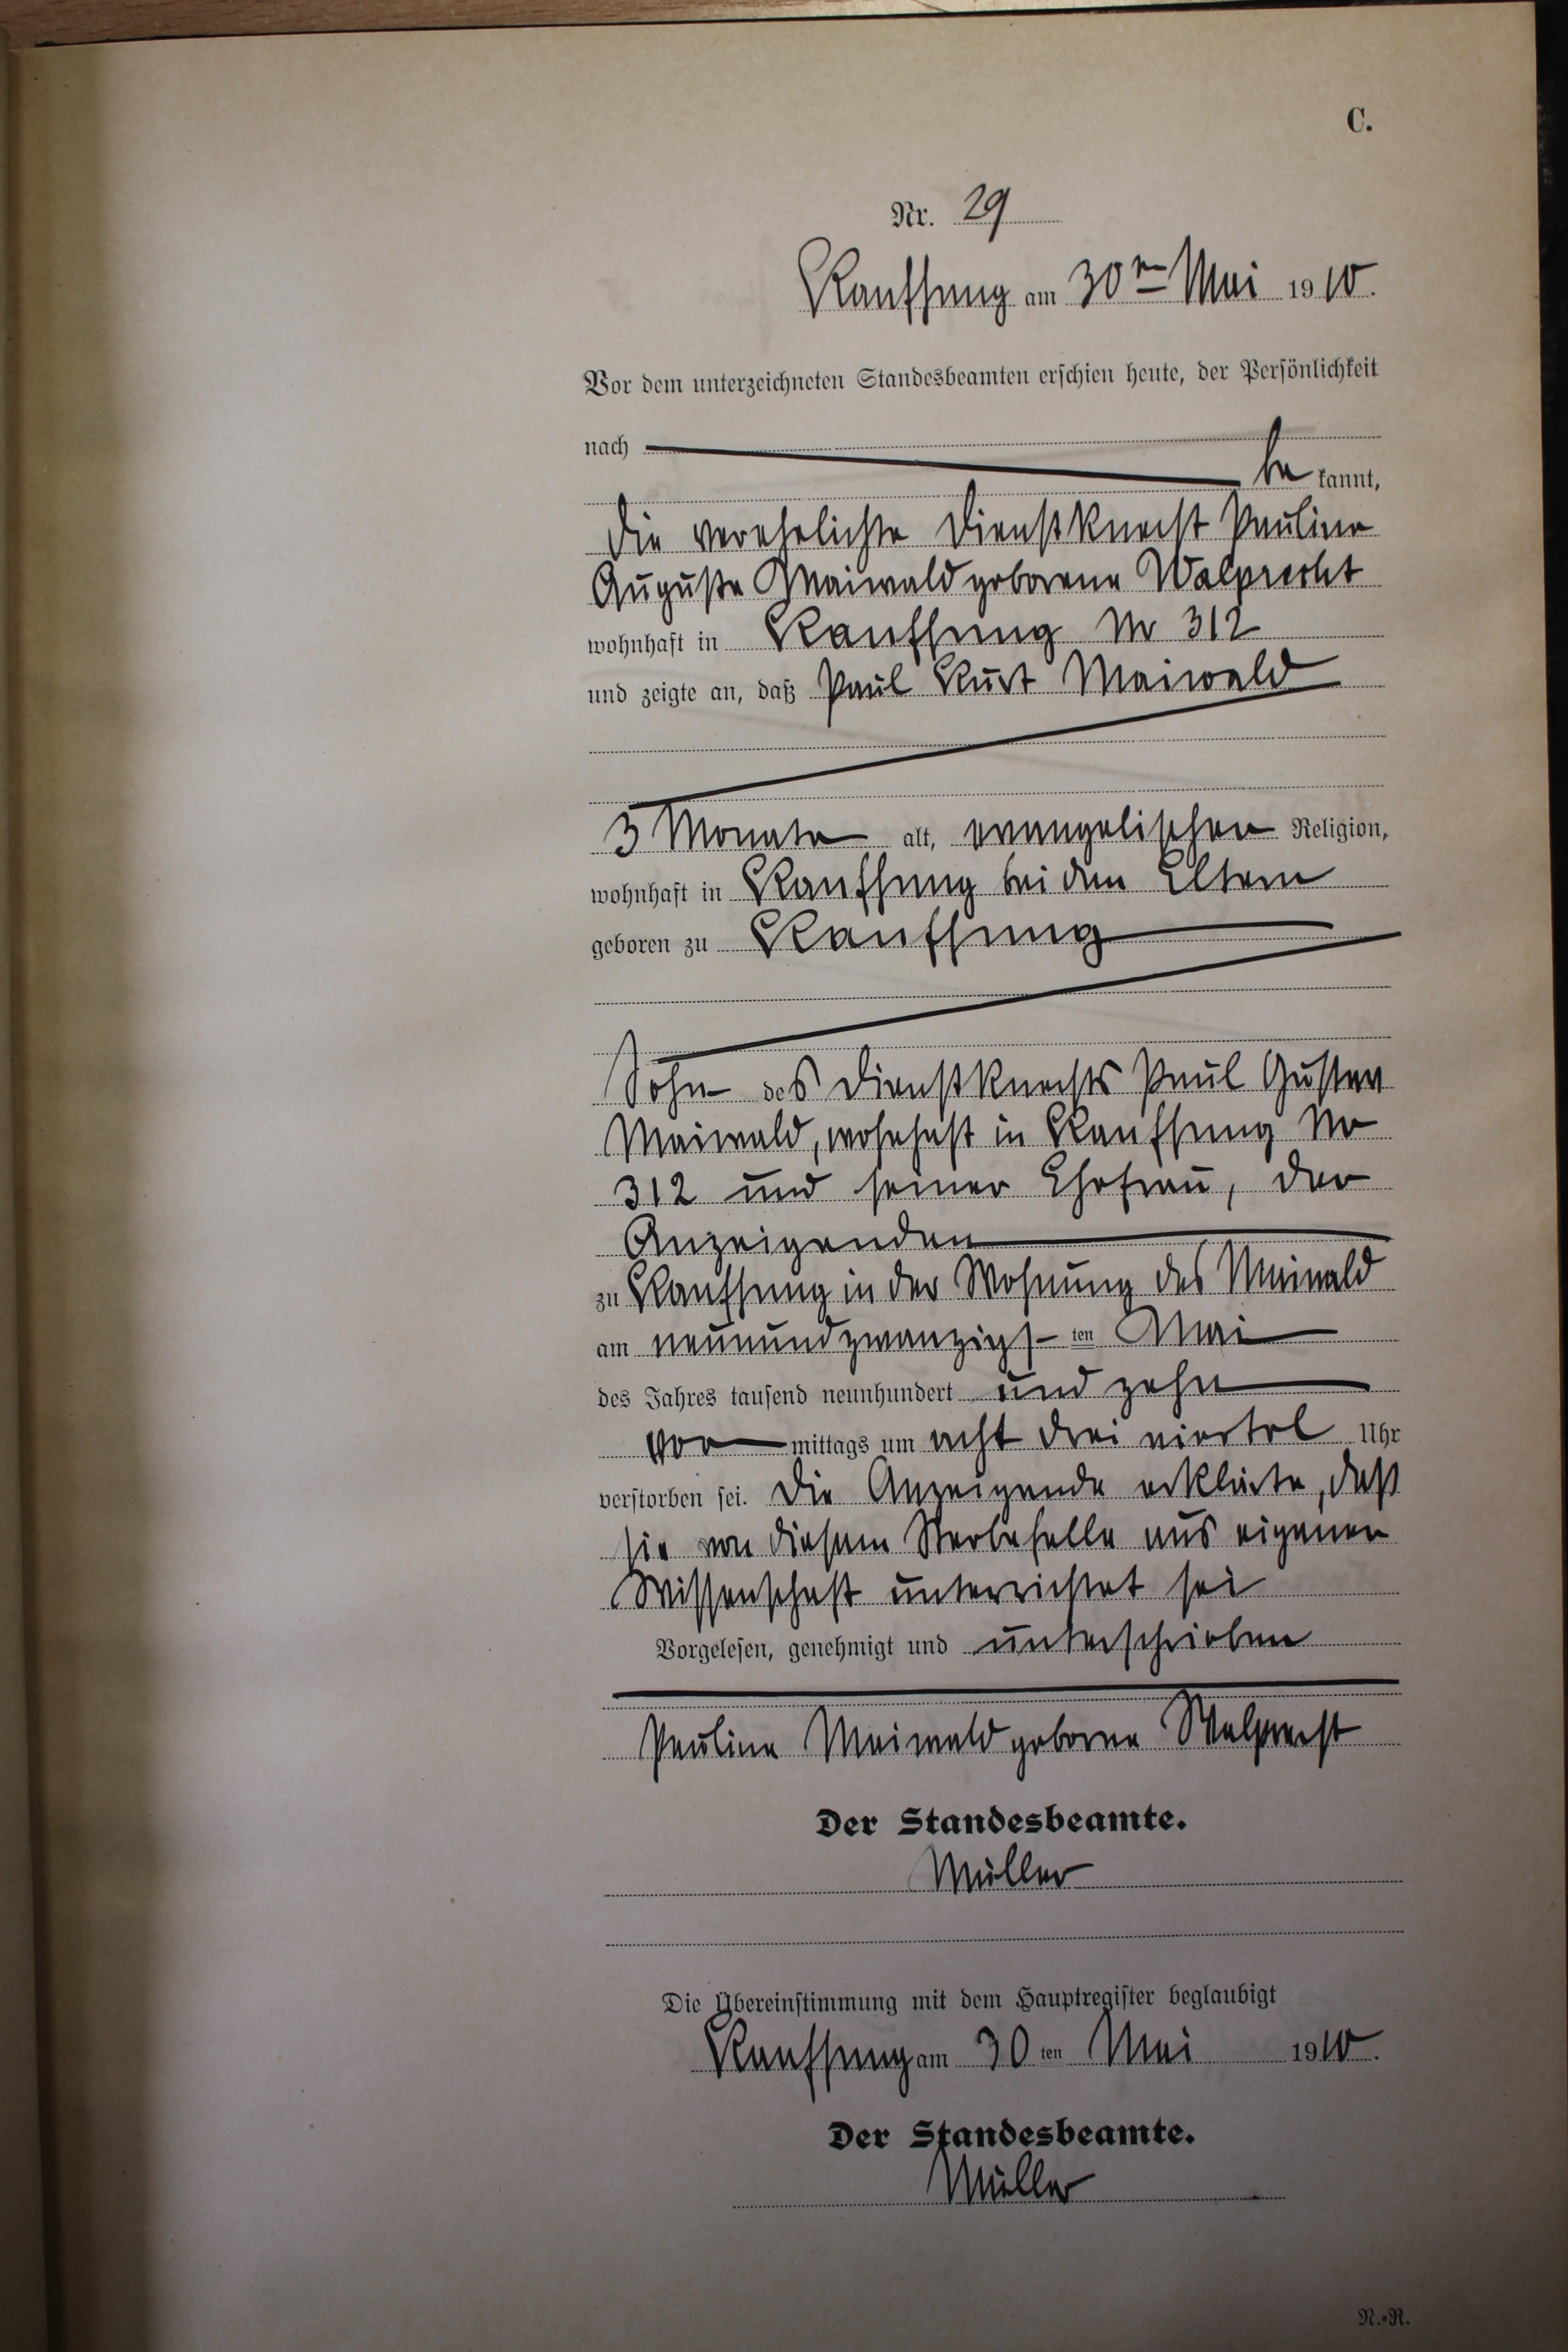 C.
Nr. 29
Kauffung am 30ten Mai 1910.
Vor dem unterzeichneten Standesbeamten erschien heute, der Persönlichkeit
nach
be kannt,
die verehelichte Dienstknecht Pauline
Auguste Maiwald geborene Walprecht
wohnhaft in Kauffung No 312
und zeigte an, daß Paul Kurt Maiwald
3 Monate alt, evangelischer Religion,
wohnhaft in Kauffung bei den Eltern
geboren zu Kauffung
Sohn des Dienstknechts Paul Gustav
Maiwald, wohnhaft in Kauffung No
312 und seiner Ehefrau, der
Anzeigenden
zu Kauffung in der Wohnung des Maiwald
am neunundzwanzigs ten Mai
des Jahres tausend neunhundert und zehn
vor mittags um acht drei viertel Uhr
verstorben sei. Die Anzeigende erklärte, daß
sie von diesem Sterbefalle aus eigener
Wissenschaft unterrichtet sei
Vorgelesen, genehmigt und unterschrieben
Pauline Maiwald geborne Walprecht
Der Standesbeamte.
Müller
Die Übereinstimmung mit dem Hauptregister beglaubigt
Kauffung am 30 ten Mai 1910.
Der Standesbeamte.
Müller
N.-R.